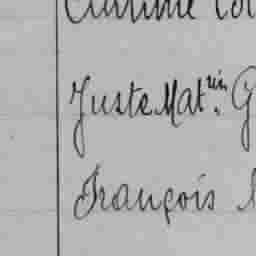 Juste Mat.rin G
François